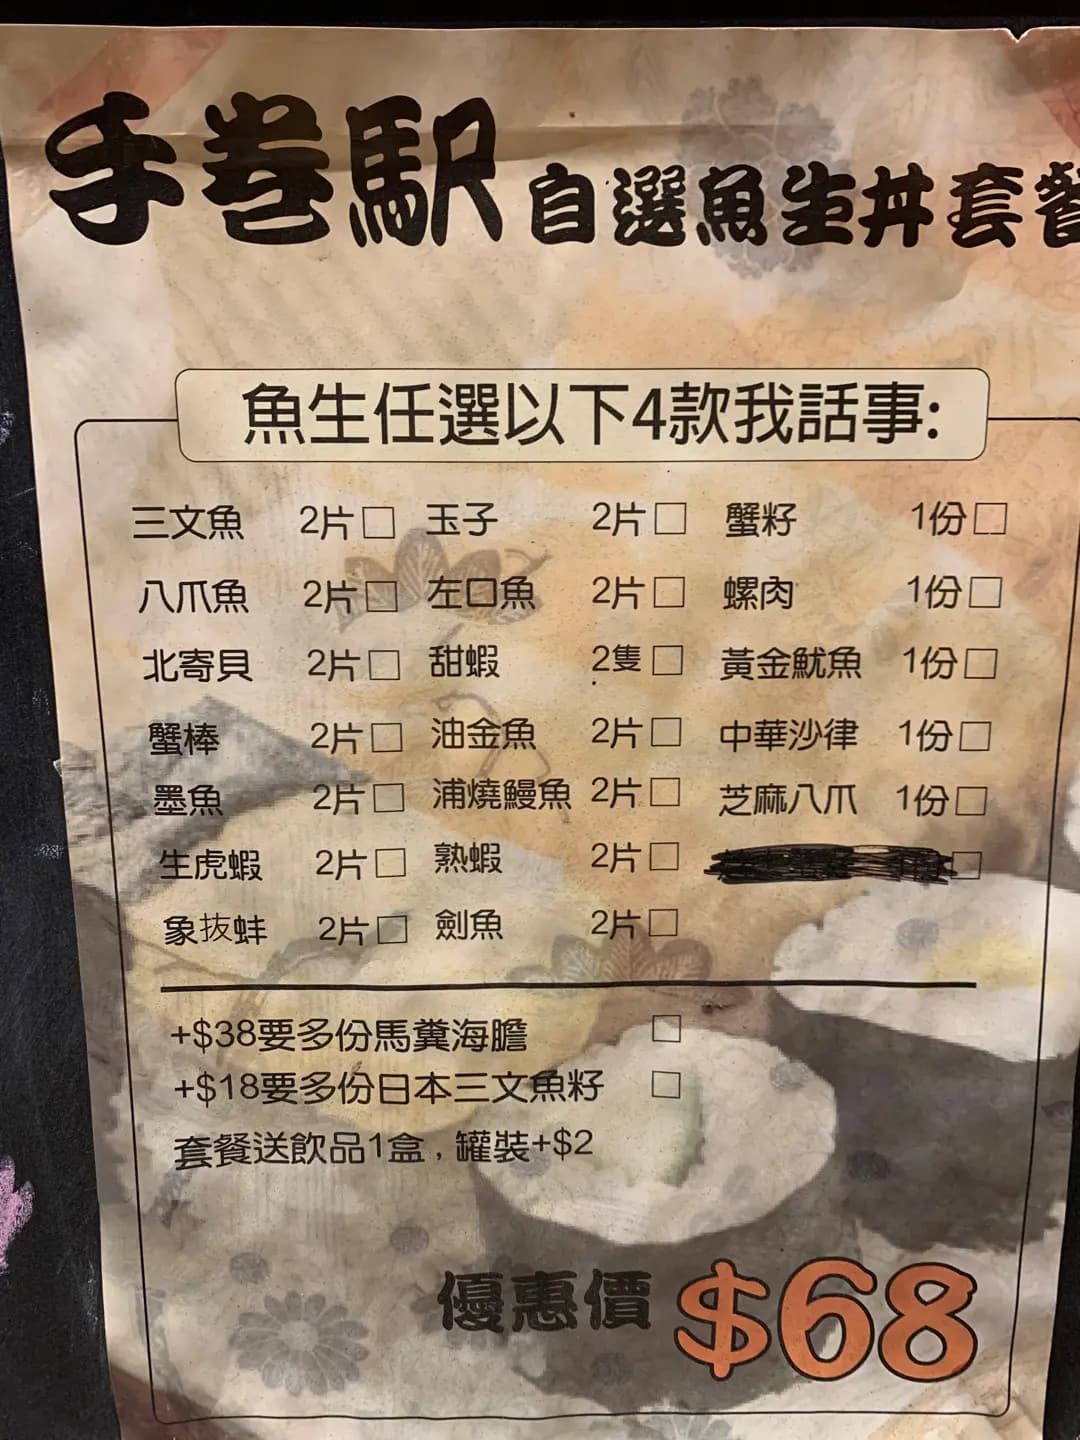 手巻駅 自選魚生丼套餐
魚生任選以下4款我話事:
三文魚 2片□ 玉子 2片□ 蟹籽 1份□
八爪魚 2片□ 左口魚 2片□ 螺肉 1份□
北寄貝 2片□ 甜蝦 2隻□ 黃金魷魚 1份□
蟹棒 2片□ 油金魚 2片□ 中華沙律 1份□
墨魚 2片□ 浦燒鰻魚 2片□ 芝麻八爪 1份□
生虎蝦 2片□ 熟蝦 2片□
象拔蚌 2片□ 劍魚 2片□
+$38要多份馬糞海膽 □
+$18要多份日本三文魚籽 □
套餐送飲品1盒，罐裝+$2
優惠價 $68